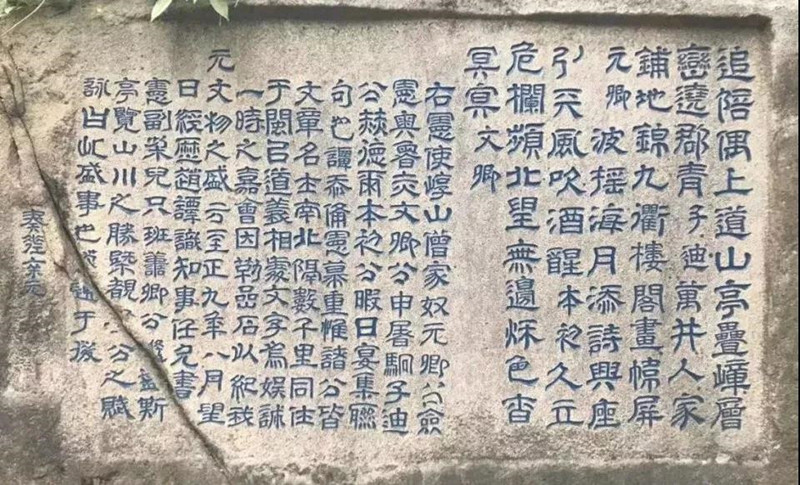 追陪偶上道山亭疊嶂層
巒遶郡青子迪萬井人家
鋪地錦九衢樓閣畫幃屏
元卿波搖海月添詩興座
引天風吹酒醒本初久立
危欄頻北望無邊秌色杳
冥冥文卿
右憲使崞山僧家奴元卿公僉
憲奧魯赤文卿公申屠駉子迪
公赫德爾本初公暇日宴集聯
句也譚忝備憲幕重惟諸公皆
文章名士南北隔數千里同仕
于閩以道義相處文字為娛誠
一時之嘉會因勒品石以紀我
元文物之盛云至正九年八月望
日經歷趙譚識知事任允書
憲副朶兒只班肅卿公斯
亭覽山川之勝槩觀公之賦
詠此盛事也題于後
奏差